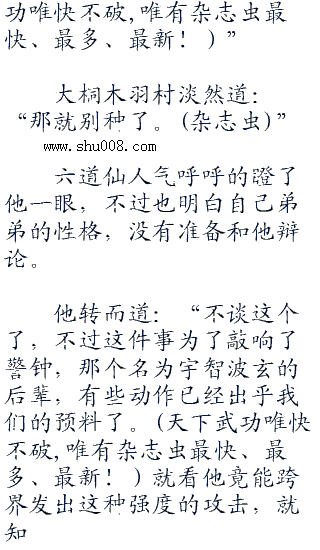 功唯快不破,唯有杂志虫最
快、最多、最新！）”
大桐木羽村淡然道：
“那就别种了。(杂志虫)”
www.shu008.com
六道仙人气呼呼的蹬了
他一眼，不过也明白自己弟
弟的性格，没有准备和他辩
论。
他转而道：“不谈这个
了，不过这件事为了敲响了
警钟，那个名为宇智波玄的
后辈，有些动作已经出乎我
们的预料了。(天下武功唯快
不破,唯有杂志虫最快、最
多、最新！）就看他竟能跨
界发出这种强度的攻击，就
知